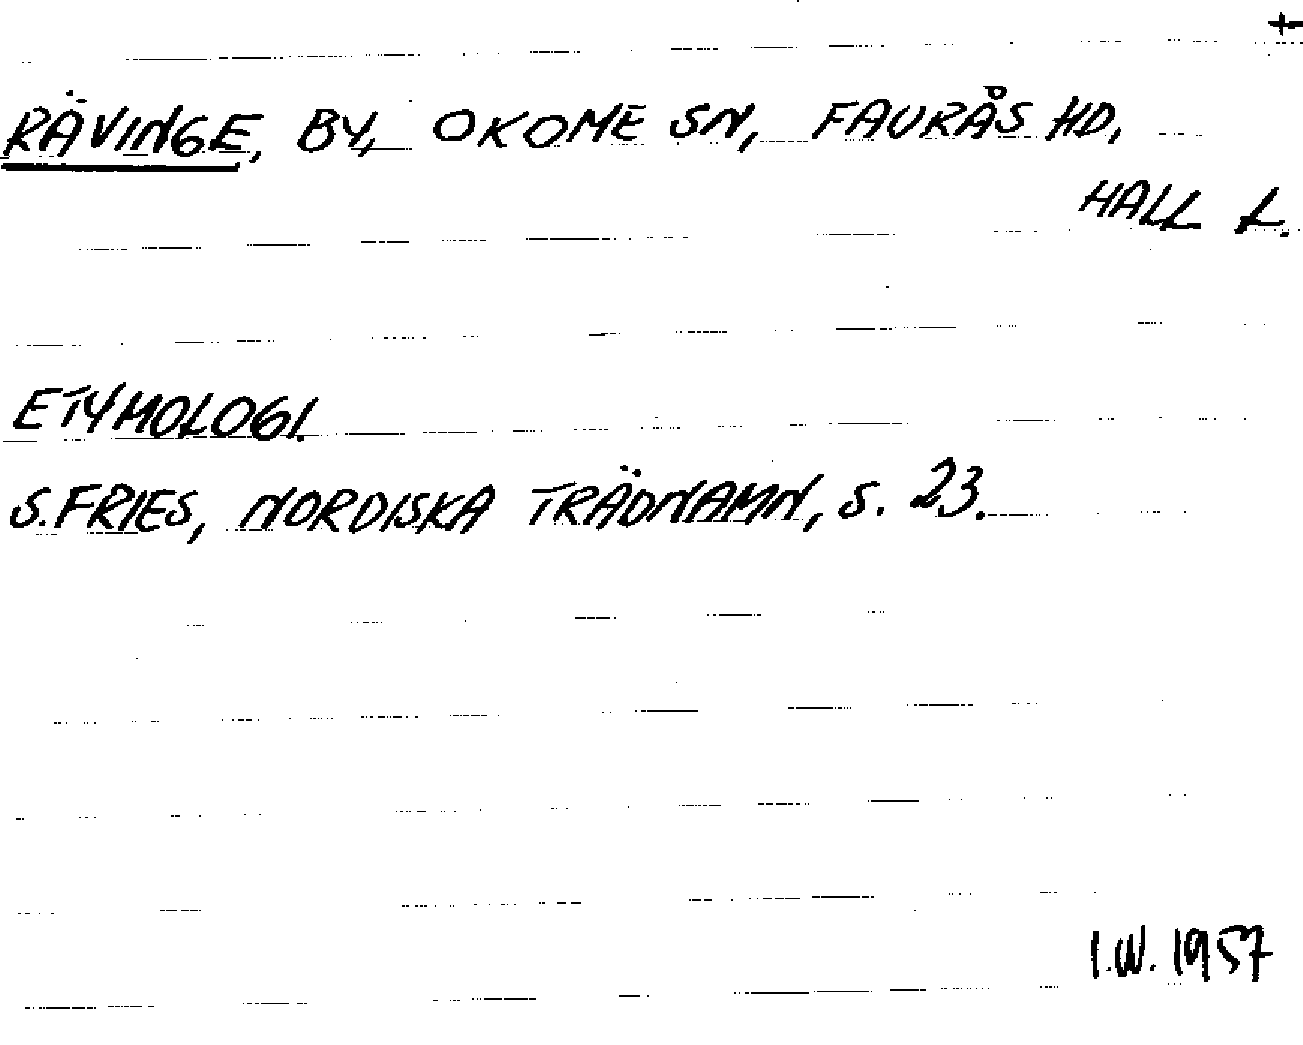 +
RÄVINGE, BY, OKOME SN, FAURÅS HD,
HALL L.
ETYMOLOGI.
S. FRIES, NORDISKA TRÄDNAMN, S. 23.
I.W. 1957